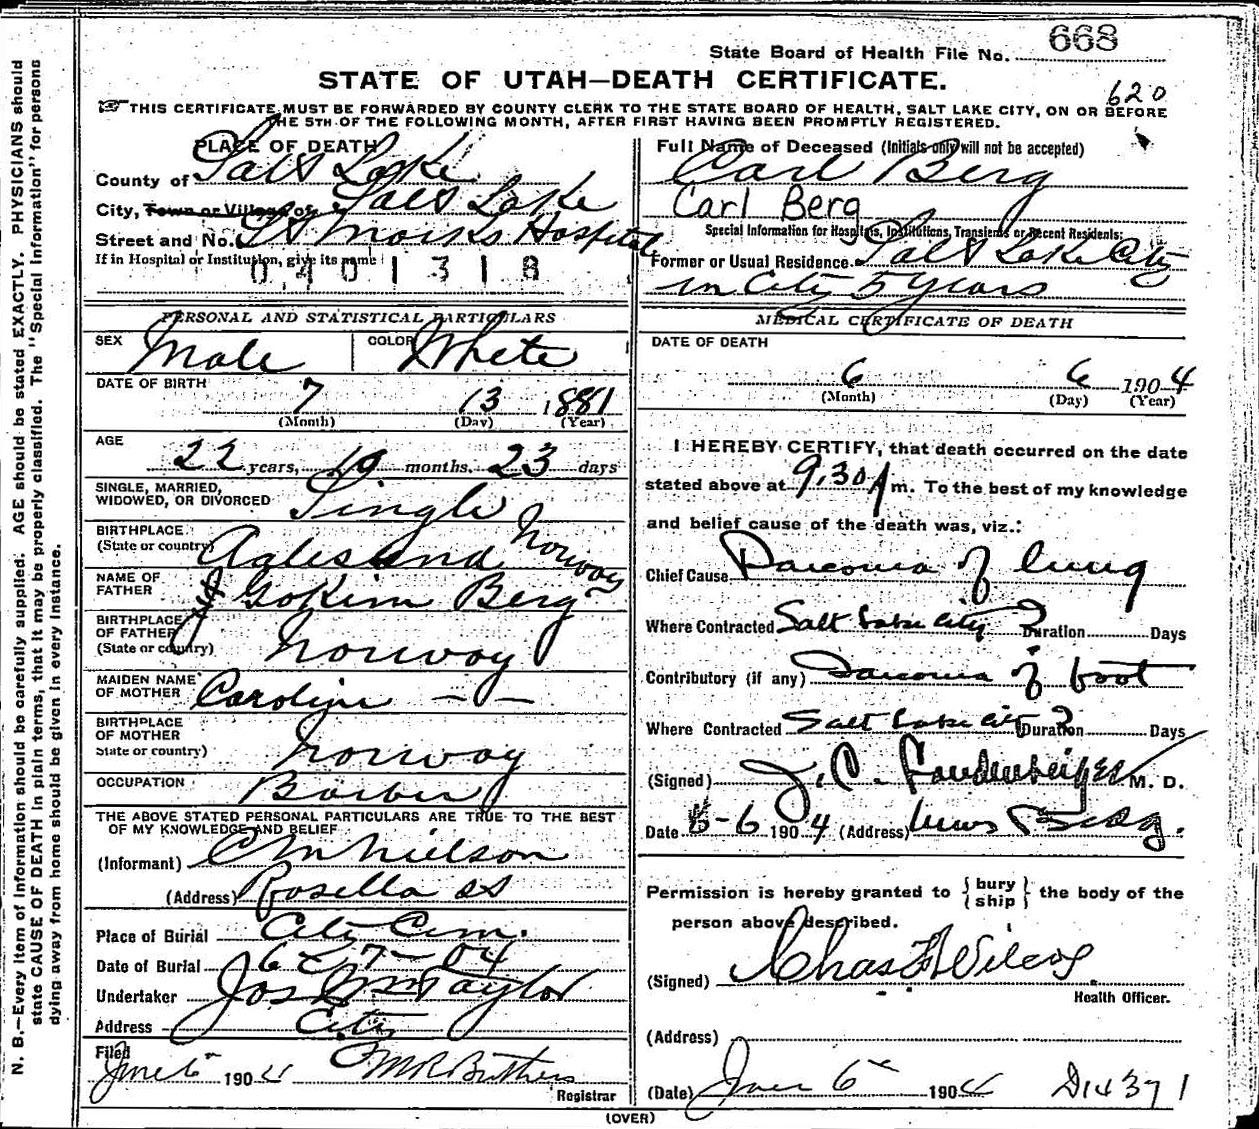 State Board of Health File No. 668
STATE OF UTAH—DEATH CERTIFICATE.
620
THIS CERTIFICATE MUST BE FORWARDED BY COUNTY CLERK TO THE STATE BOARD OF HEALTH, SALT LAKE CITY, ON OR BEFORE
THE 5TH OF THE FOLLOWING MONTH, AFTER FIRST HAVING BEEN PROMPTLY REGISTERED.
PLACE OF DEATH
County of Salt Lake
City, Town or Village of Salt Lake
Street and No. St Marks Hospital
If in Hospital or Institution, give its name
0401318
PERSONAL AND STATISTICAL PARTICULARS
SEX Male COLOR White
DATE OF BIRTH
7 13 1881
(Month) (Day) (Year)
AGE
22 years, 10 months, 23 days
SINGLE, MARRIED,
WIDOWED, OR DIVORCED Single
BIRTHPLACE
(State or country) Norway
NAME OF
FATHER Berg
BIRTHPLACE
OF FATHER
(State or country) Norway
MAIDEN NAME
OF MOTHER Caroline — —
BIRTHPLACE
OF MOTHER
State or country) Norway
OCCUPATION Barber
THE ABOVE STATED PERSONAL PARTICULARS ARE TRUE TO THE BEST
OF MY KNOWLEDGE AND BELIEF
(Informant) C M Nielson
(Address) Rosella St
Place of Burial City Cem.
Date of Burial 6-7-04
Undertaker Jos Wm Taylor
Address City
Filed
June 6 1904
Registrar
Full Name of Deceased (Initials only will not be accepted)
Carl Berg
Carl Berg
Special Information for Hospitals, Institutions, Transients or Recent Residents:
Former or Usual Residence Salt Lake City
in City 5 years
MEDICAL CERTIFICATE OF DEATH
DATE OF DEATH
6 6 1904
(Month) (Day) (Year)
I HEREBY CERTIFY, that death occurred on the date
stated above at 9.30 A m. To the best of my knowledge
and belief cause of the death was, viz.:
Chief Cause Sarcoma of lung
Where Contracted Salt Lake City Duration ? Days
Contributory (if any) Sarcoma of foot
Where Contracted Salt Lake City Duration ? Days
(Signed) J. C. M. D.
Date 6-6 1904 (Address) News Bldg.
Permission is hereby granted to { bury
ship } the body of the
person above described.
(Signed) Chas F Wilcox
Health Officer.
(Address)
(Date) June 6 1904 D14371
(OVER)
N. B.—Every item of information should be carefully supplied. AGE should be stated EXACTLY. PHYSICIANS should
state CAUSE OF DEATH in plain terms, that it may be properly classified. The "Special Information" for persons
dying away from home should be given in every instance.